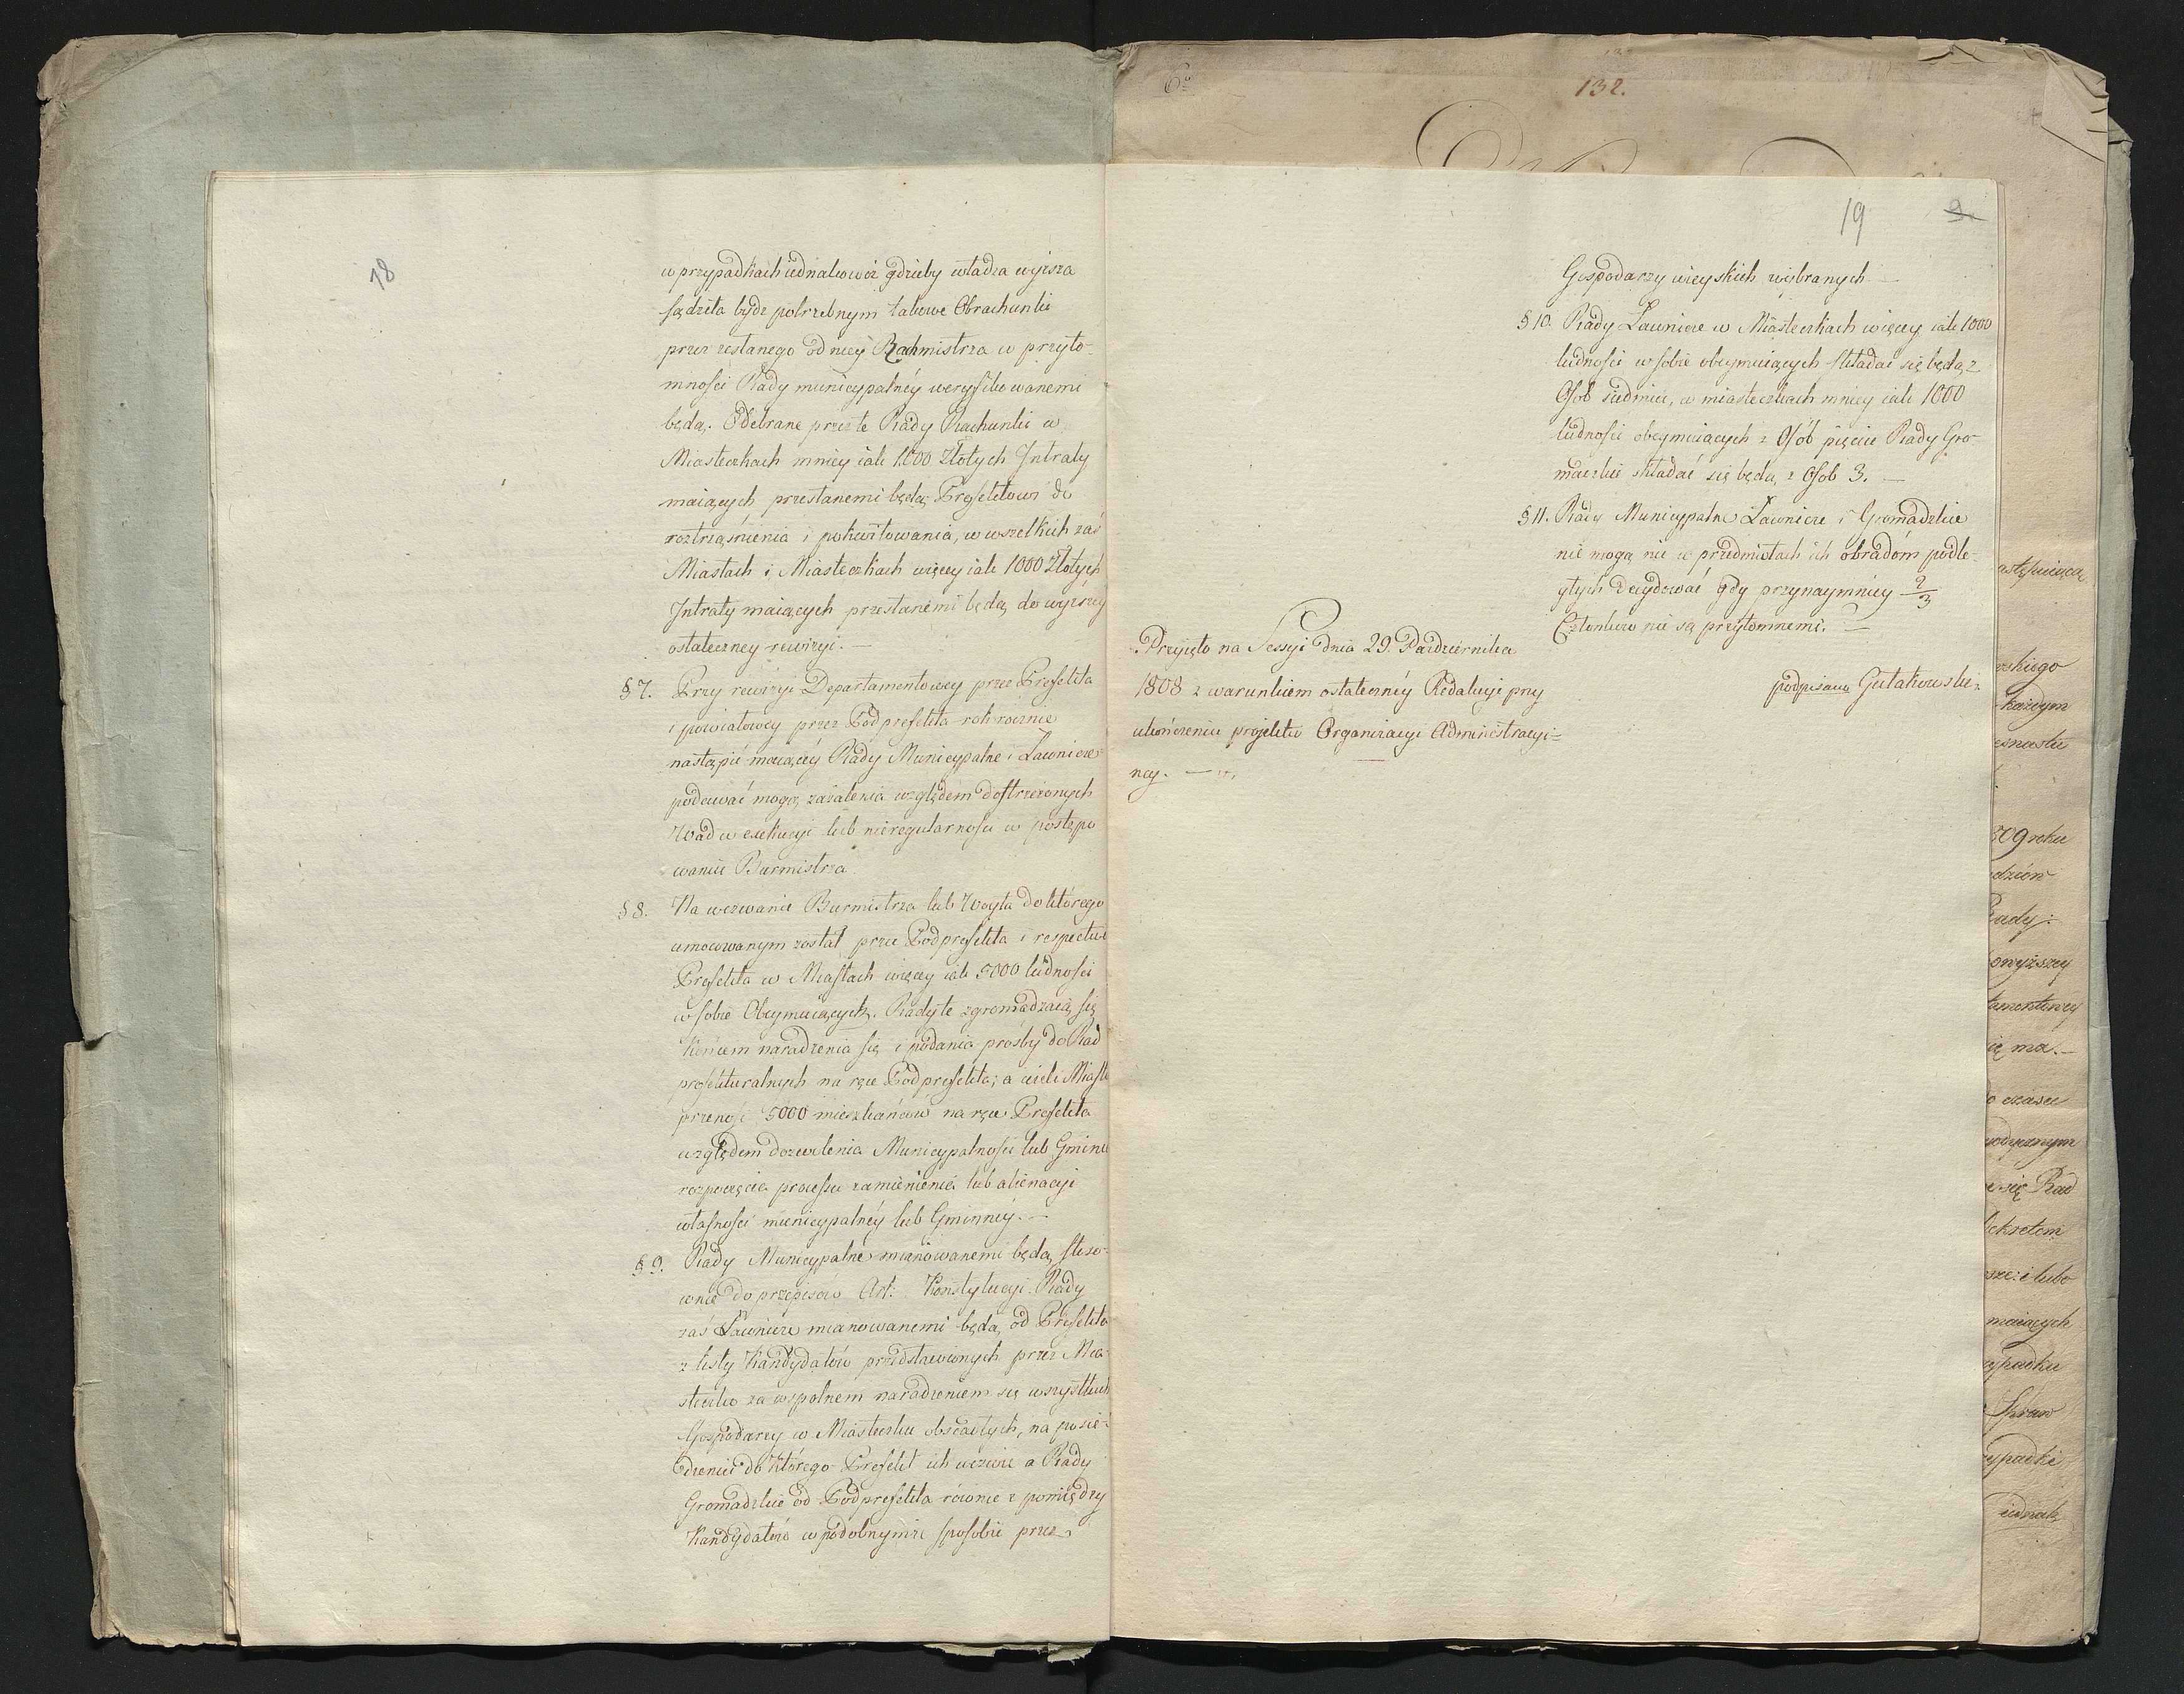 18
w przypadkach iednakowoż gdzieby władza wyższa
sądziła bydz potrzebnym takowe Obrachunki
przez zesłanego od niey Rachmistrza w przyto-
mności Rady municypalnéy weryfikowanemi
będą. Odebrane przez te Rady Rachunki w
Miasteczkach mniey iak 1000 Złotych Intraty
maiących przesłanemi będą Prefektowi do
roztrząśnienia i pokwitowania, w wszelkich zaś
Miastach i Miasteczkach więcey iak 1000 Złotych
Intraty maiących przesłanemi będą do wyższey
ostateczney rewizyi. —
§ 7. Przy rewizyi Departamentowey przez Prefekta
i powiatowey przez Podprefekta rok rocznie
nastąpić maiącéy Rady Municypalne i Ławnicze
podawać mogą zażalenia względem dostrzeżonych
Wad w exekucyi lub nieregularności w postępo
waniu Burmistrza
§ 8. Na wezwanie Burmistrza lub Woyta do którego
umocowanym został przez Podprefekta i respective
Prefekta w Miastach więcey iak 5000 ludności
w sobie Obeymuiących. Rady te zgromadzaią się
końcem naradzenia się i podania prośby do Rad
prefekturalnych na ręce Podprefekta; a ieżeli Miast
przenosi 5000 mieszkańców na ręce Prefekta
względem dozwolenia Municypalności lub Gminie
rozpoczęcia processu zamienienia lub alienacyi
własności municypalnéy lub Gminnéy. —
§ 9. Rady Municypalne mianowanemi będą stoso-
wnie do przepisów Art: Konstytucyi. Rady
zaś Ławnicze mianowanemi będą od Prefekta
z listy Kandydatów przedstawionych przez Mia-
steczko za wspolnem naradzeniem się wszystkich
Gospodarzy w Miasteczku osiadłych, na posie-
dzenie do którego Prefekt ich wezwie a Rady
Gromadzkie od Podprefekta równie z pomiędzy
Kandydatów w podobnymże sposobie przez
6º
132.
19
9.
Gospodarzy wieyskich wybranych —
§ 10. Rady Ławnicze w Miasteczkach więcey iak 1000
ludności w sobie obeymuiących składać się będą z
Osob siedmiu, w miasteczkach mniey iak 1000
ludności obeymuiących z Osób pięciu Rady Gro-
madzkie składać się będą z Osob 3. —
§ 11. Rady Municypalne Ławnicze i Gromadzkie
nie mogą nic w przedmiotach ich obradóm podle-
głych decydować gdy przynaymniey 2/3
Członków nie są przytomnemi. —
podpisany Gutakowski
Przyięto na Sessyi dnia 29. Października
1808 z warunkiem ostatecznéy Redakcyi przy
ukończeniu projektu Organizacyi Administracyi-
ney. —
astępuiącą
rskiego
każdym
809 roku
Rady:
ię ma. —
o czasu
się Rad
ekretem
maiących
ypadku
Spraw
ypadki
iednak